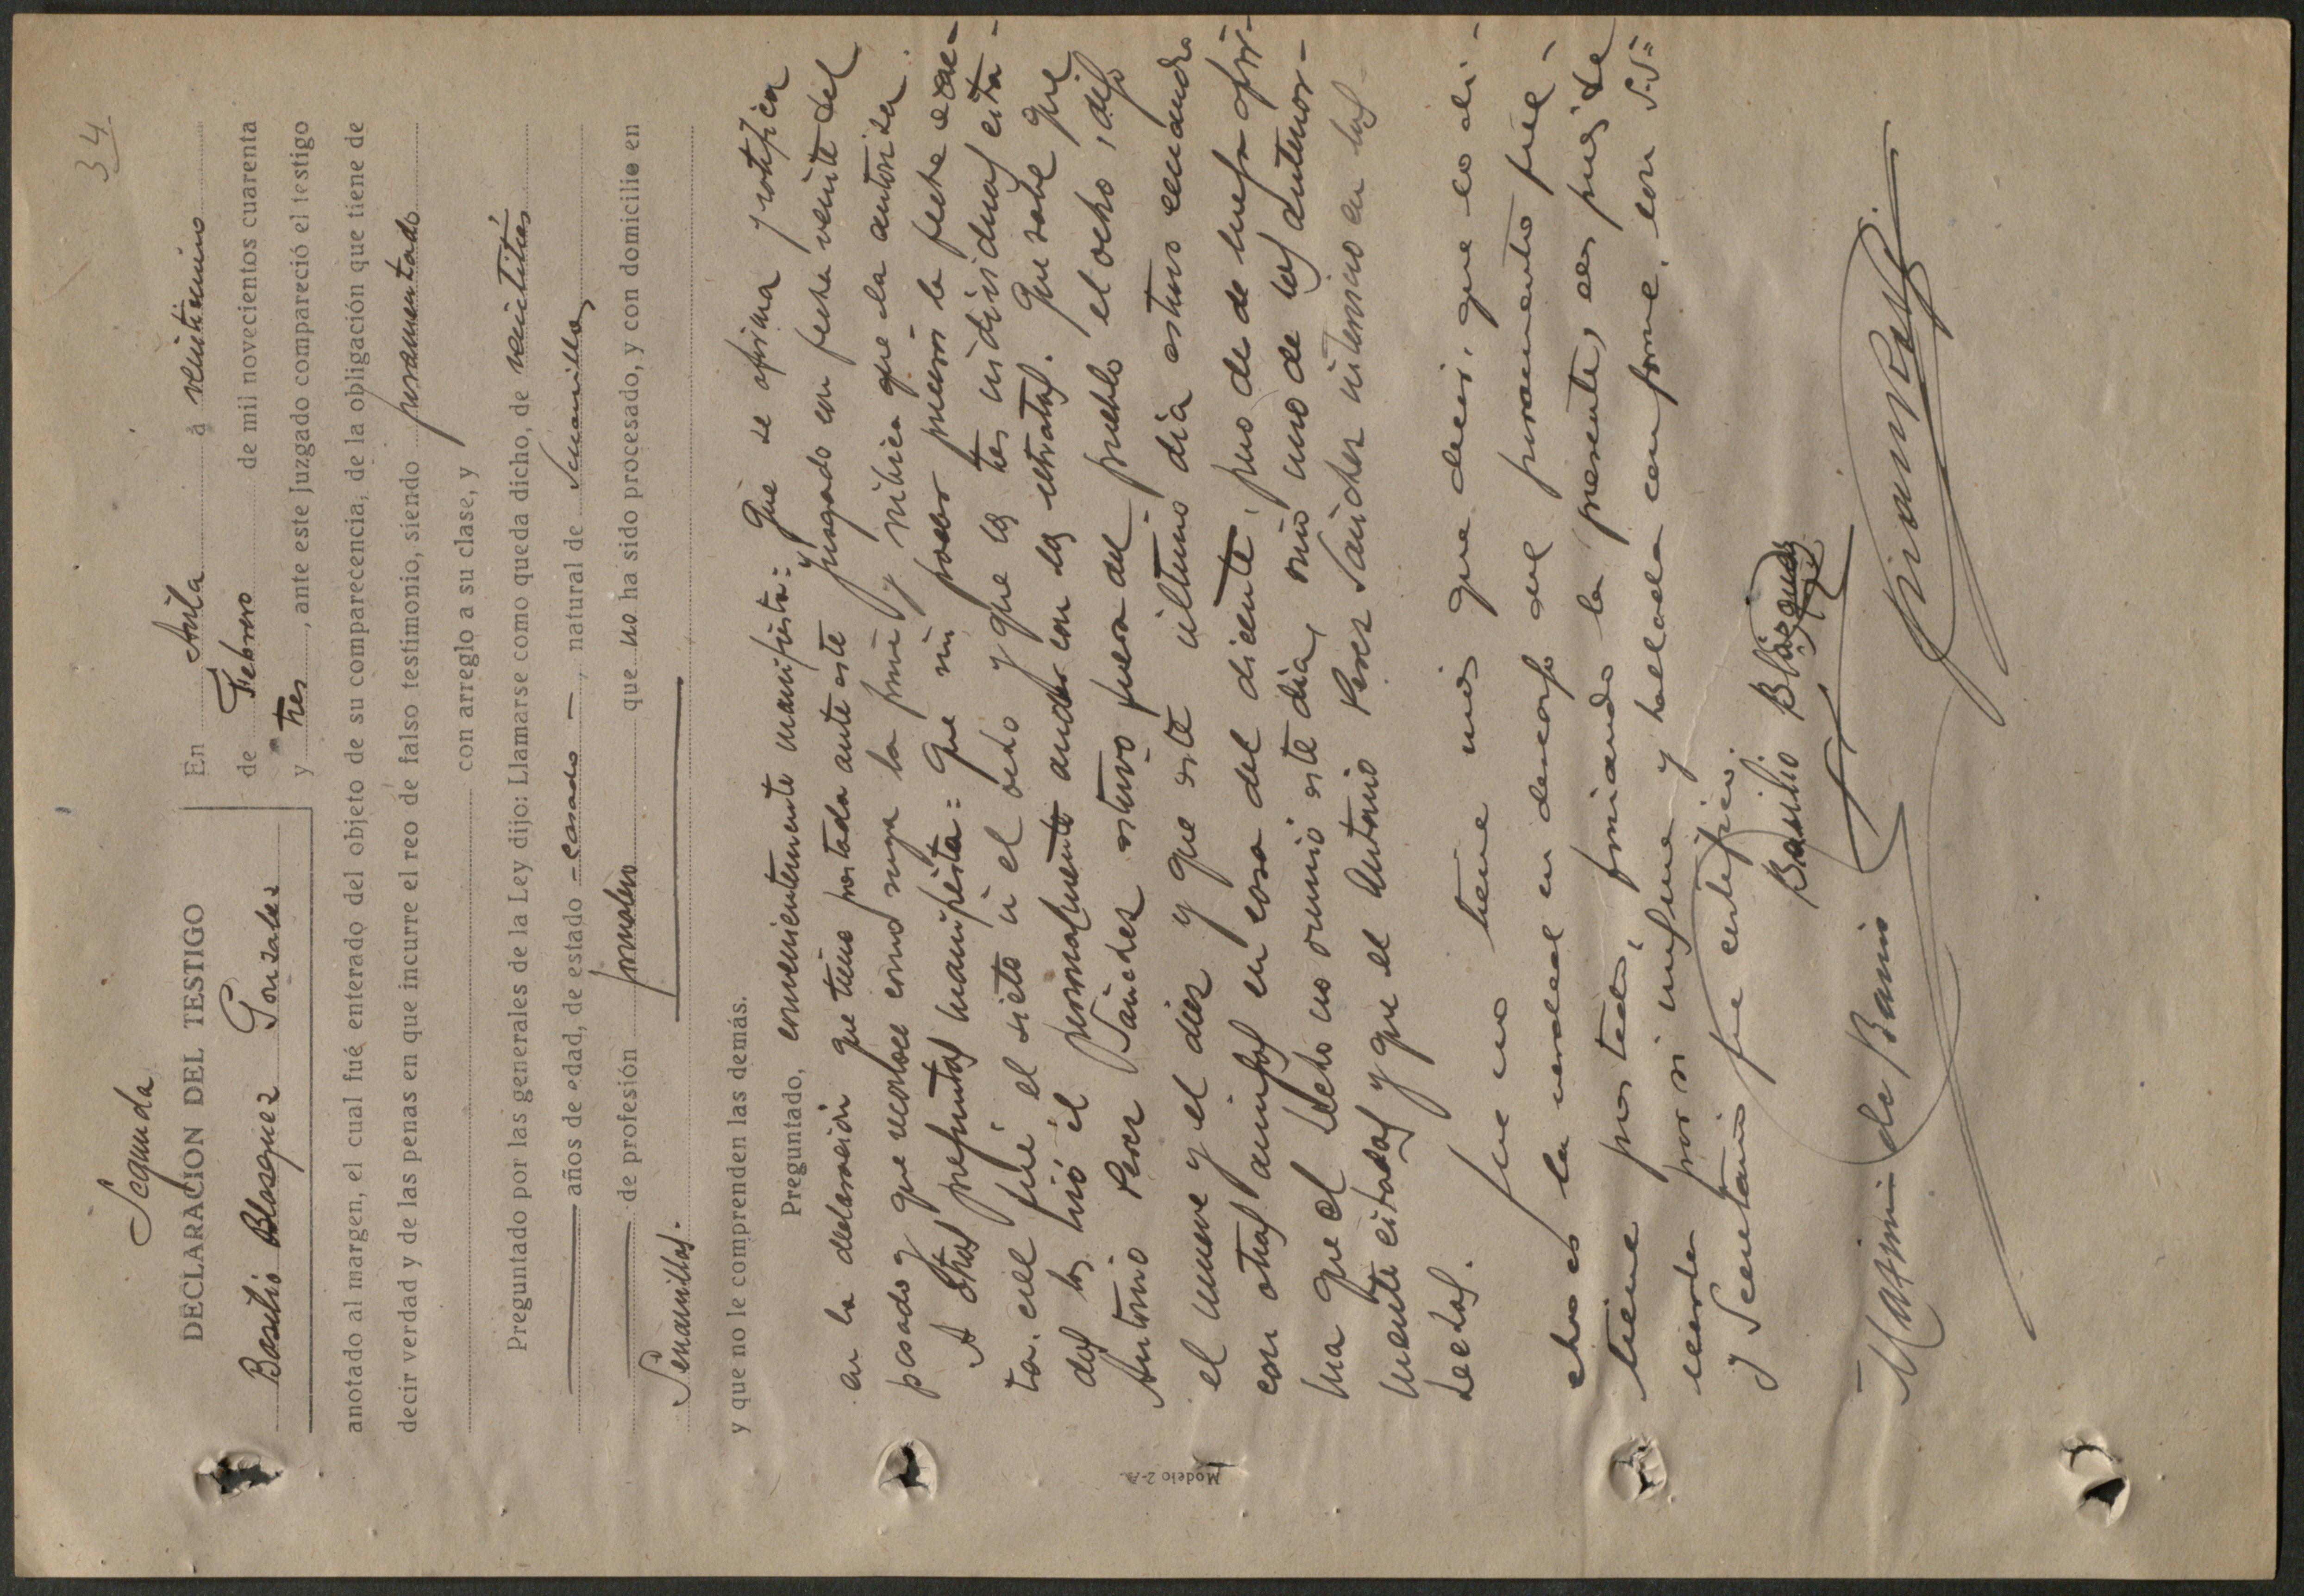 34
Segunda
DECLARACION DEL TESTIGO
Basilio Blasquez Gonzalez
En Avila a veintiuno
de Febrero de mil novecientos cuarenta
y tres, ante este Juzgado compareció el testigo
anotado al margen, el cual fué enterado del objeto de su comparecencia, de la obligación que tiene de
decir verdad y de las penas en que incurre el reo de falso testimonio, siendo juramentado
con arreglo a su clase, y
Preguntado por las generales de la Ley dijo: Llamarse como queda dicho, de veintitres
años de edad, de estado - casado -, natural de Senanillas
de profesión jornalero que no ha sido procesado, y con domicilio en
Senanillas.
y que no le comprenden las demás.
Preguntado, convenientemente manifiesta: Que se afirma y ratifica
en la declaración que tiene prestada ante este Juzgado en fecha veinte del
pasado y que reconoce como suya la firma y rúbrica que la autoriza.
A otras preguntas manifiesta: Que sin poder precisar la fecha exac-
ta. cree fué el siete u el ocho y que los tres individuos cita-
dos los vió él personalmente andar con los
Antonio Perez Sanchez estuvo fuera del pueblo el ocho, dijo
el nueve y el diez y que este ultimo dia estuvo cenando
con otros amigos en casa del diciente, pero desde luego afir-
ma que el hecho no ocurrió este dia, sino uno de los anterior-
mente citados y que el Antonio Perez Sanchez intervino en los
hechos.
Que no tiene más que decir, que lo di-
cho es la verdad en descargo del juramento que
tiene prestado, firmando la presente, después de
leerla por si mismo y hallarla conforme, con S.S=
y Secretario que certifico.
Basilio Blázquez
Modelo 2-A.